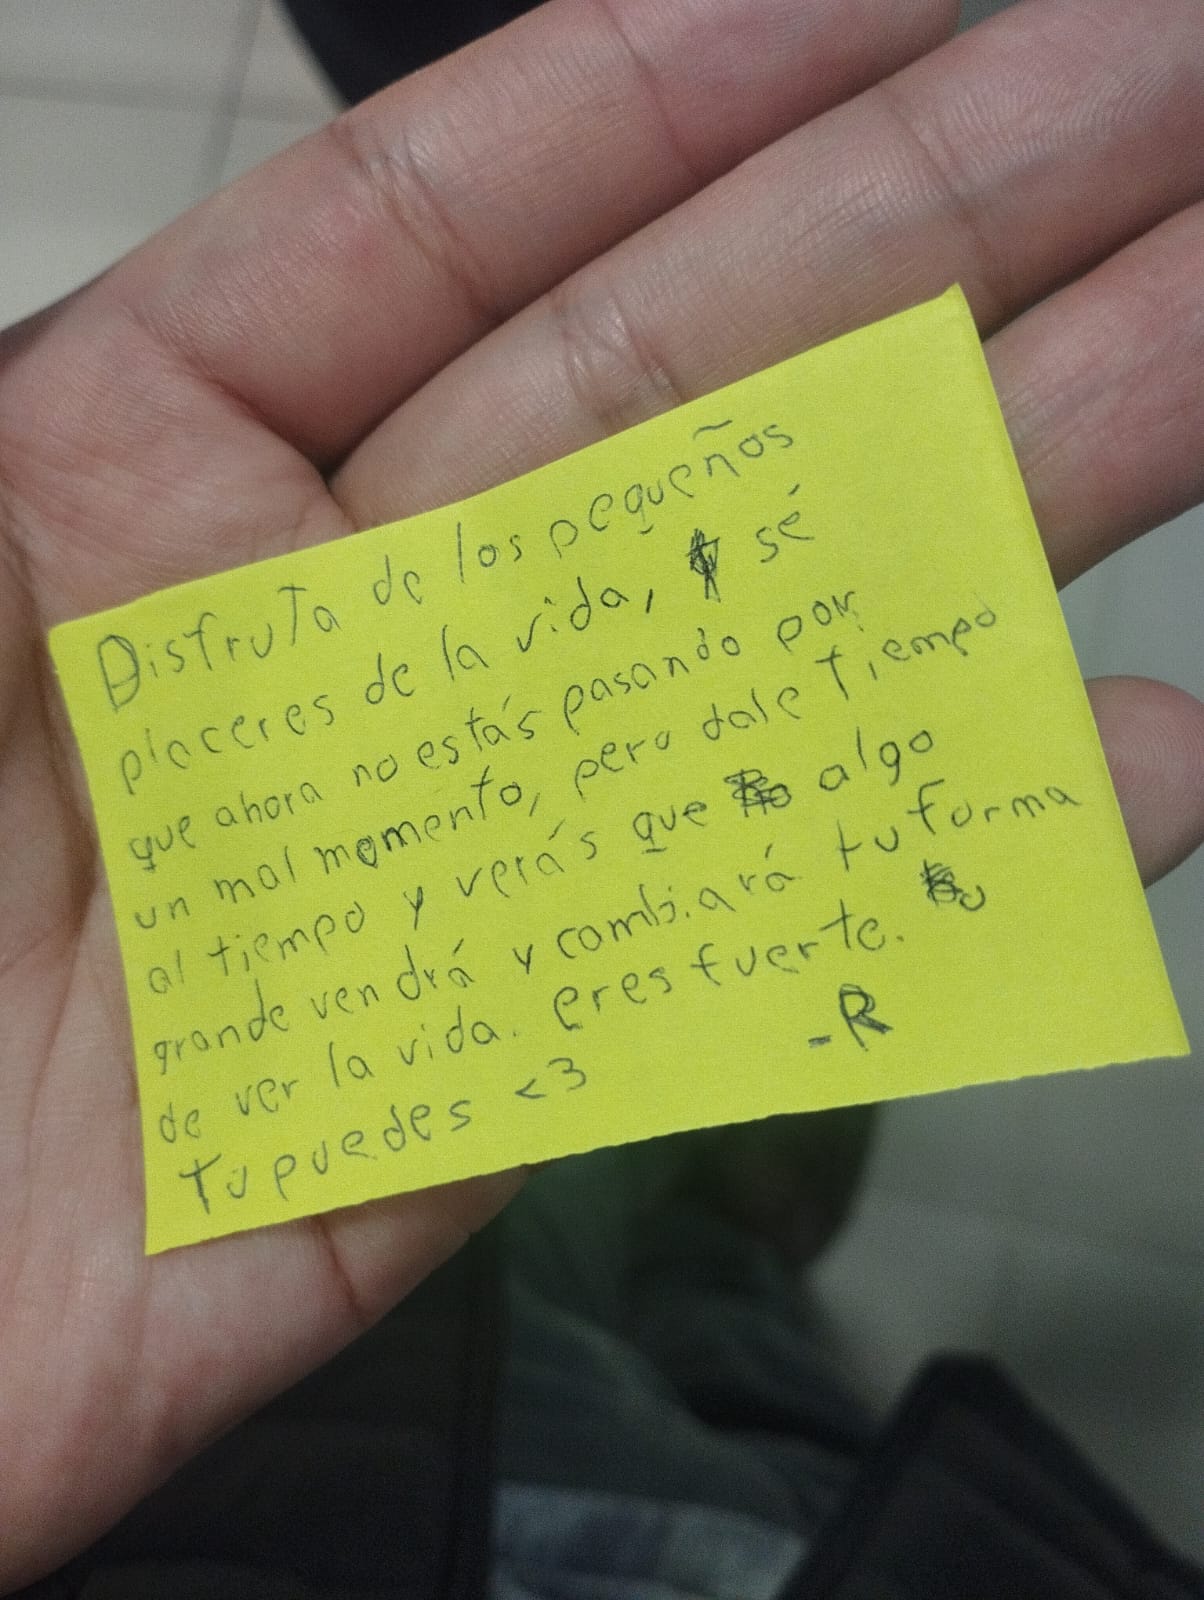 Disfruta de los pequeños
placeres de la vida, sé
que ahora no estás pasando por
un mal momento, pero dale tiempo
al tiempo y verás que algo
grande vendrá y cambiará tu forma
de ver la vida. eres fuerte.
Tu puedes <3
-R